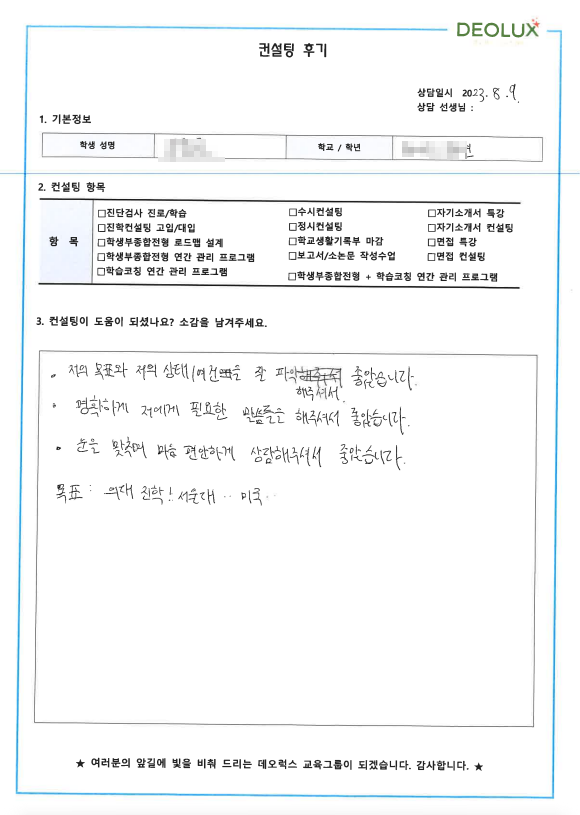 DEOLUX
컨설팅 후기
상담일시 2023. 8. 9.
상담 선생님 :
1. 기본정보
학생 성명 학교 / 학년
2. 컨설팅 항목
항 목
□진단검사 진로/학습 □수시컨설팅 □자기소개서 특강
□진학컨설팅 고입/대입 □정시컨설팅 □자기소개서 컨설팅
□학생부종합전형 로드맵 설계 □학교생활기록부 마감 □면접 특강
□학생부종합전형 연간 관리 프로그램 □보고서/소논문 작성수업 □면접 컨설팅
□학습코칭 연간 관리 프로그램 □학생부종합전형 + 학습코칭 연간 관리 프로그램
3. 컨설팅이 도움이 되셨나요? 소감을 남겨주세요.
• 저의 목표와 저의 상태/여건을 잘 파악 해주셔서 좋았습니다.
• 명확하게 저에게 필요한 말씀들을 해주셔서 좋았습니다.
• 눈을 맞추며 마음 편안하게 상담해주셔서 좋았습니다.
목표 : 의대 진학! 서울대 .. 미국..
★ 여러분의 앞길에 빛을 비춰 드리는 데오럭스 교육그룹이 되겠습니다. 감사합니다. ★